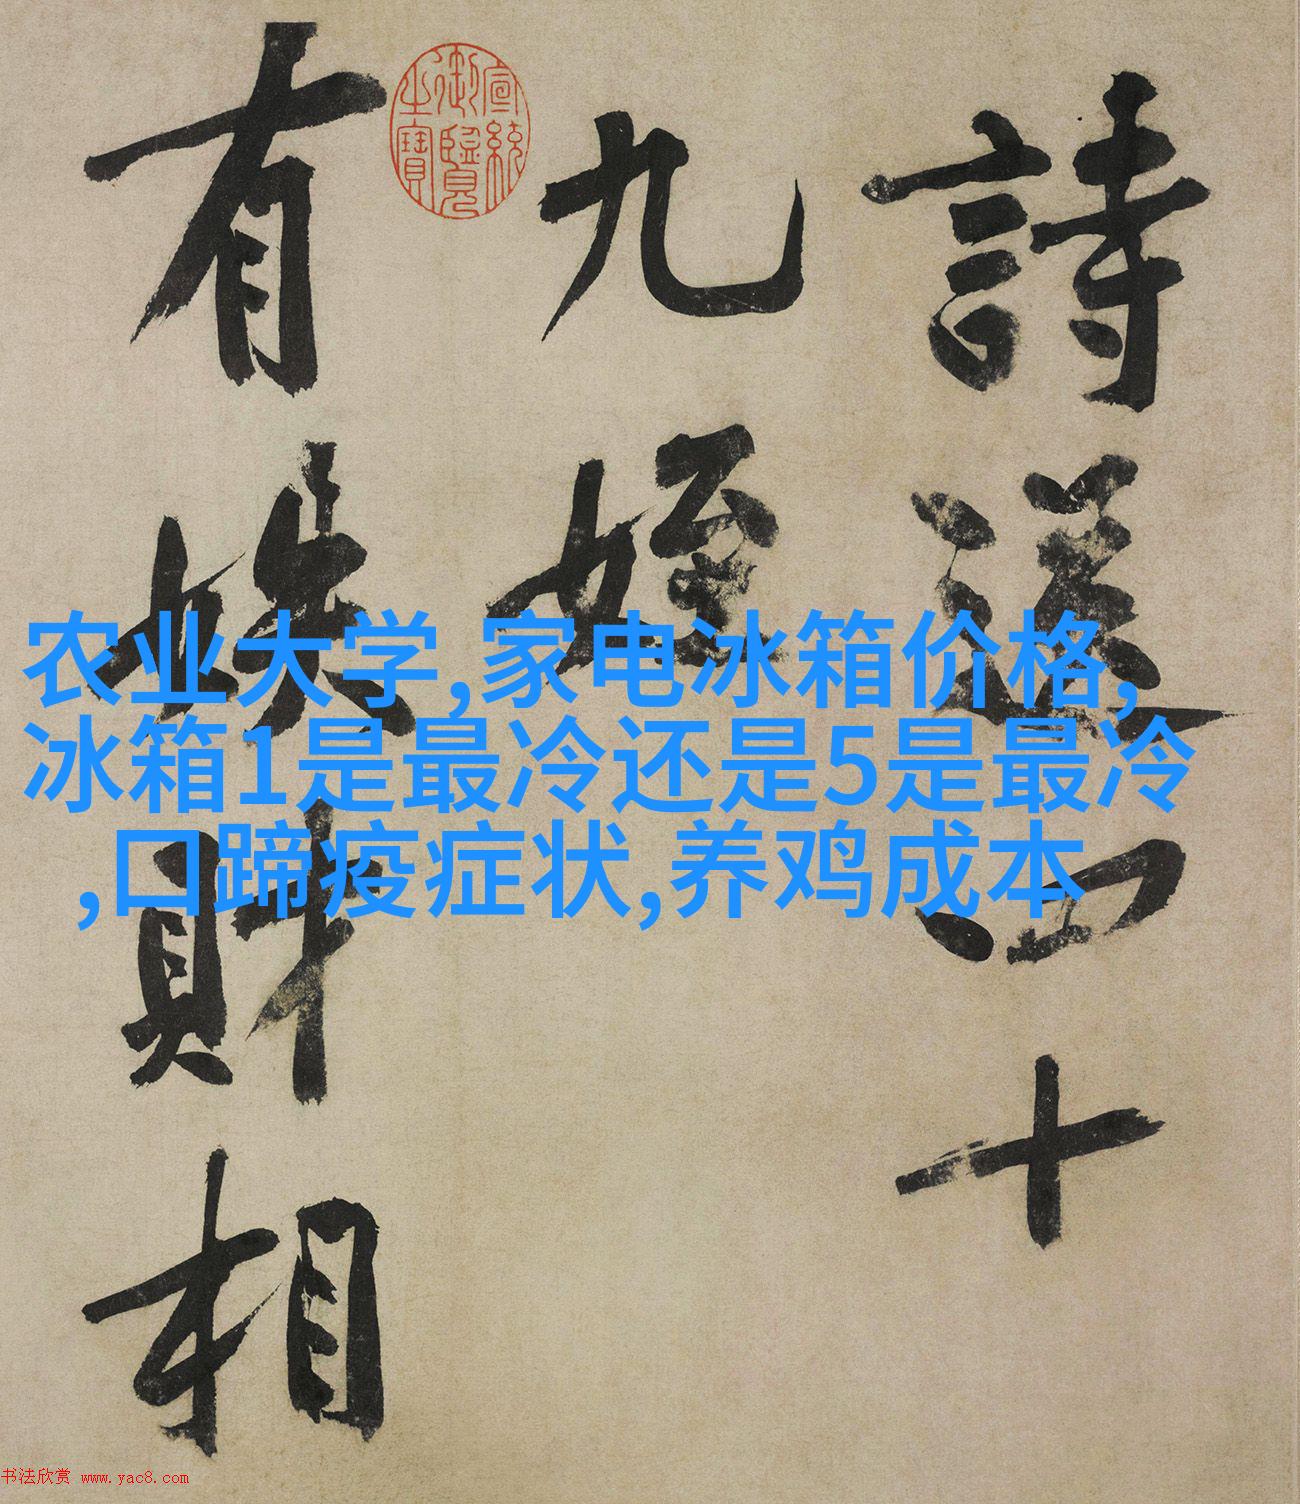 詩送四十
九姪
有財相
宣統御覽之寶
农业大学,家电冰箱价格,
冰箱1是最冷还是5是最冷
,口蹄疫症状,养鸡成本
书法欣赏 www.yac8.com